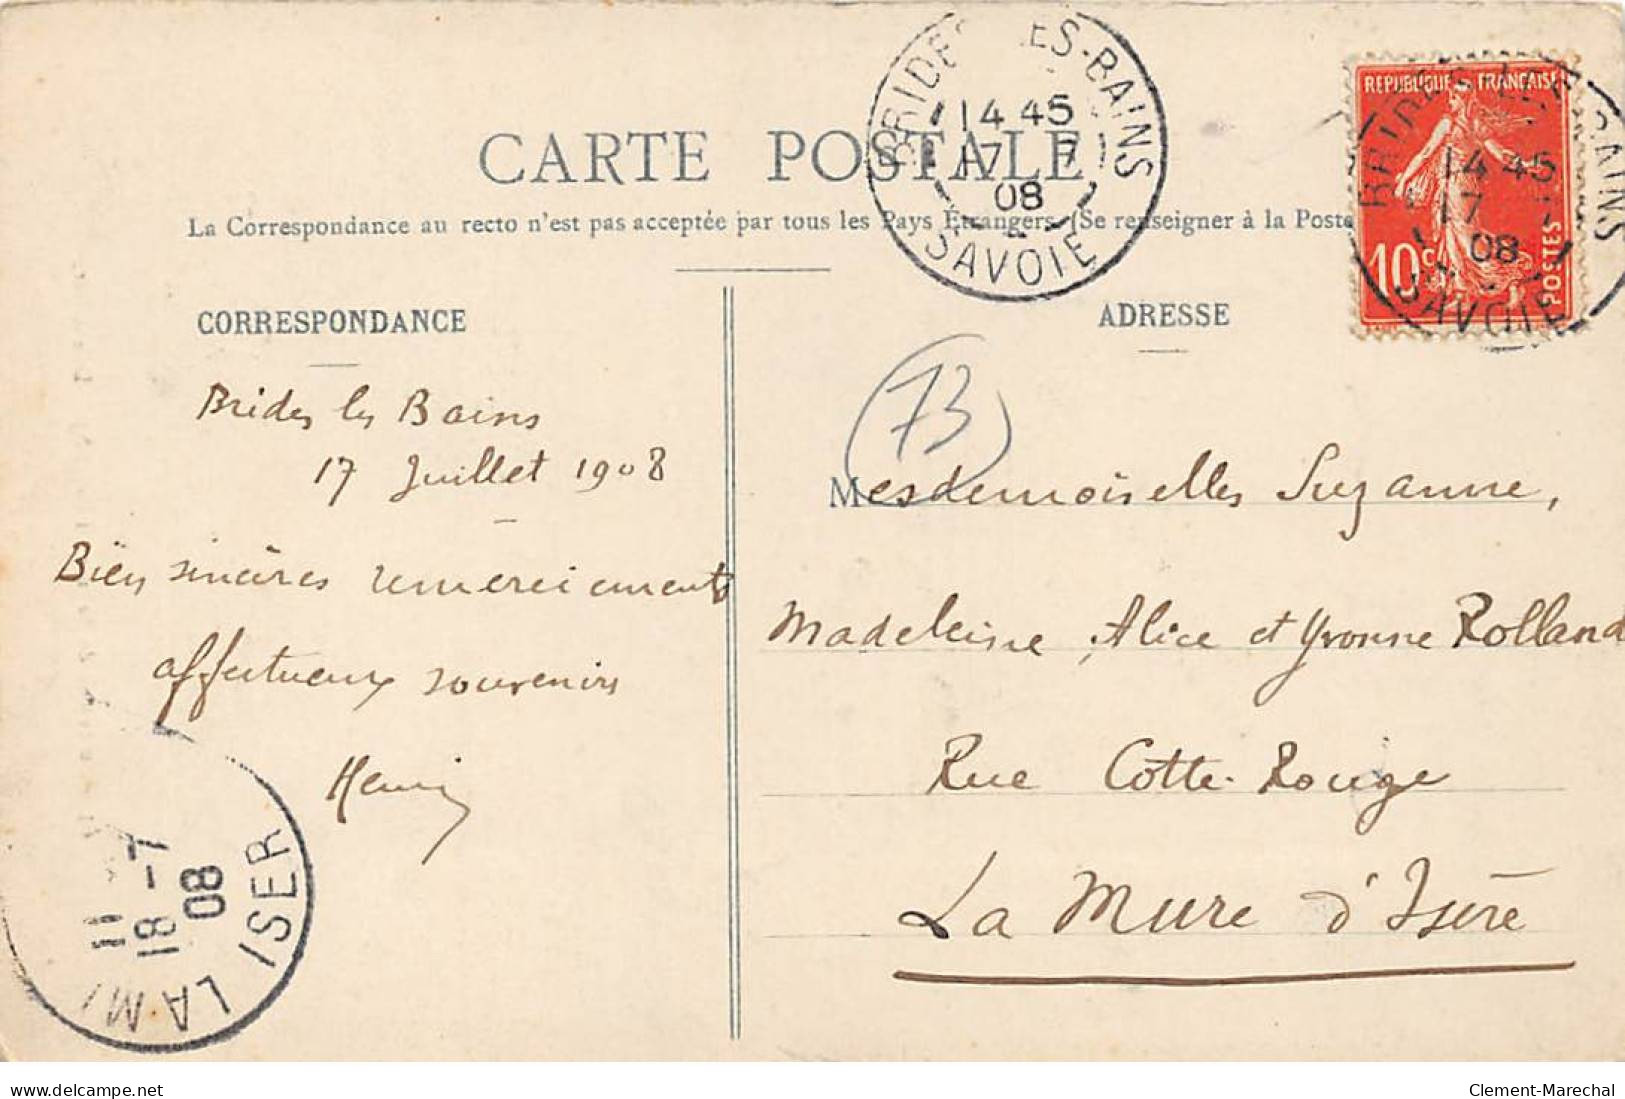 CARTE POSTALE
La Correspondance au recto n'est pas acceptée par tous les Pays Etrangers. (Se renseigner à la Poste
BRIDES-LES-BAINS
14 45
17 7
08
SAVOIE
REPUBLIQUE FRANÇAISE
10 c
POSTES
BRIDES-LES-BAINS
14 45
17
08
SAVOIE
CORRESPONDANCE
Brides les Bains
17 Juillet 1908
Bien sincères remerciements
affectueux souvenirs
Henri
11
18 -7
08
LA M ISER
ADRESSE
73
Mesdemoiselles Suzanne,
Madeleine, Alice et Yvonne Rolland
Rue Cotte-Rouge
La Mure d'Isère
www.delcampe.net
Clement-Marechal